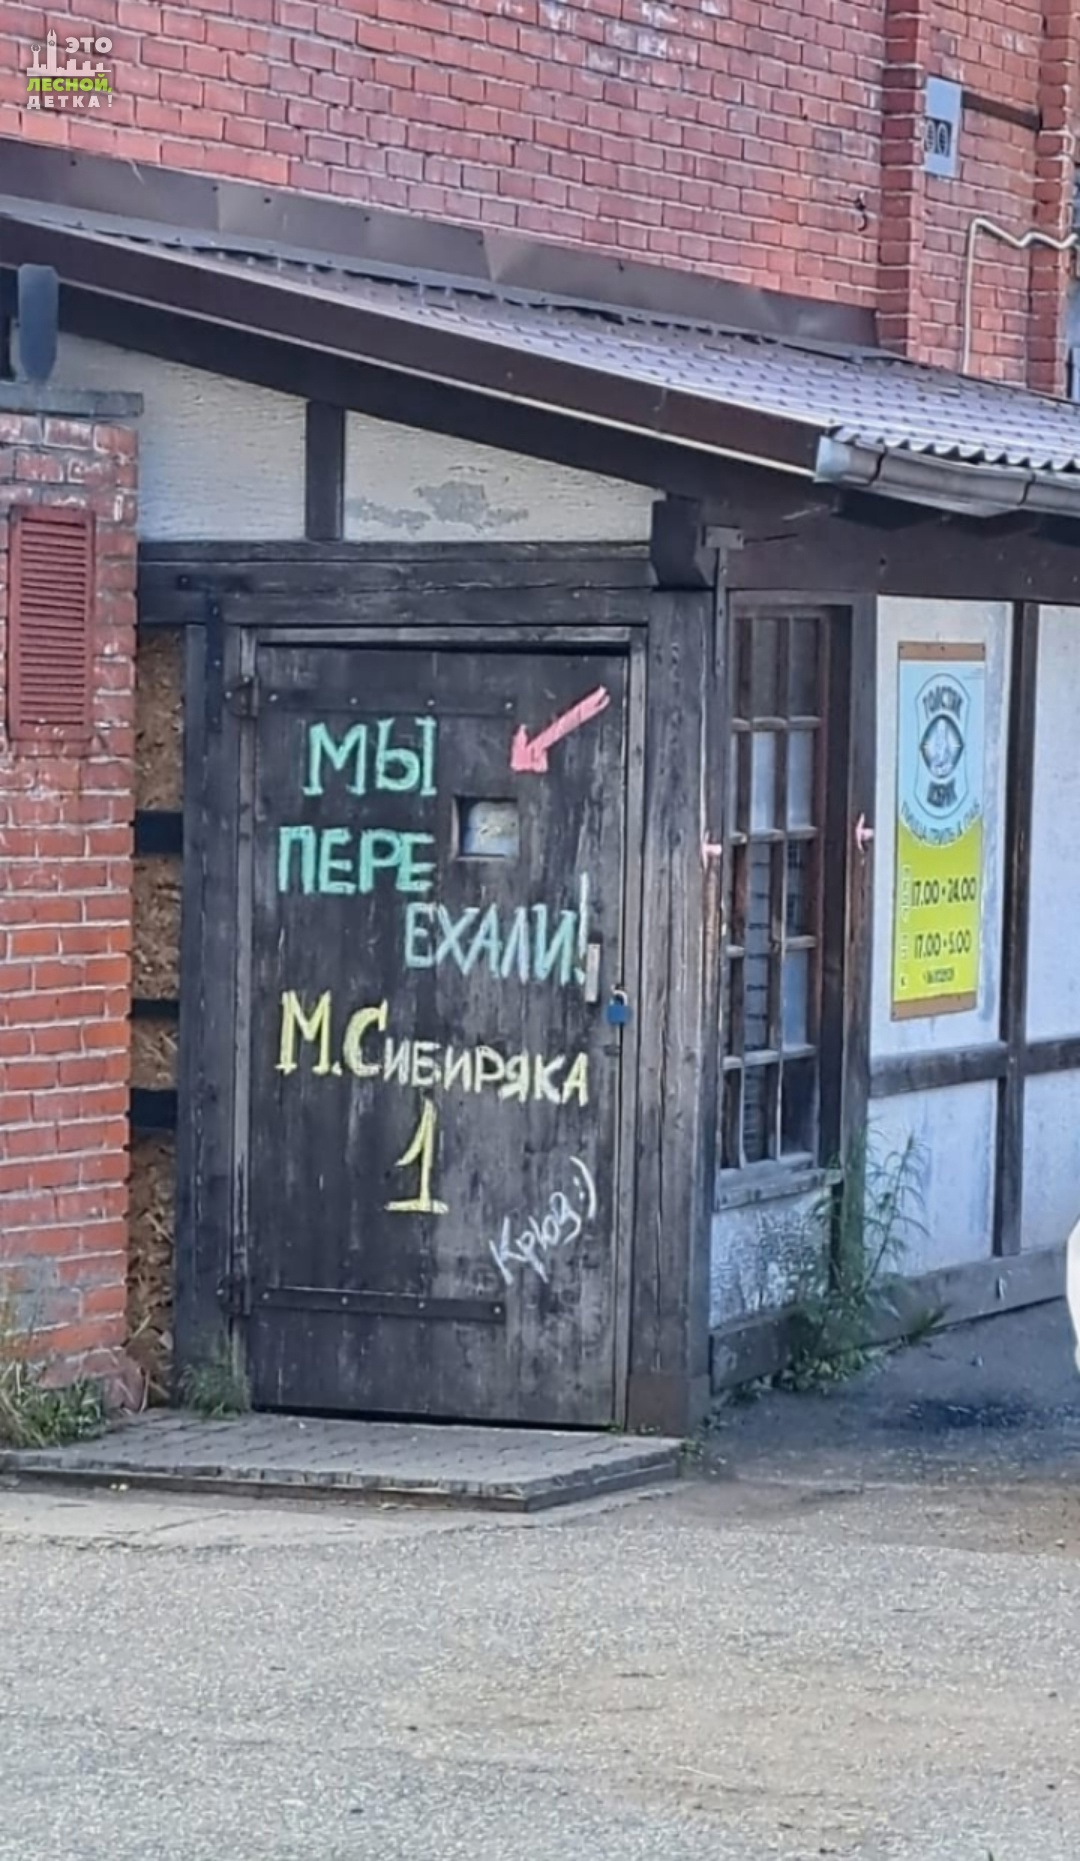 ЭТО
ЛЕСНОЙ,
ДЕТКА!
МЫ
ПЕРЕ
ЕХАЛИ!
М.СИБИРЯКА
1
Крюз:)
ТОЛСТЯК
17.00-24.00
17.00-5.00